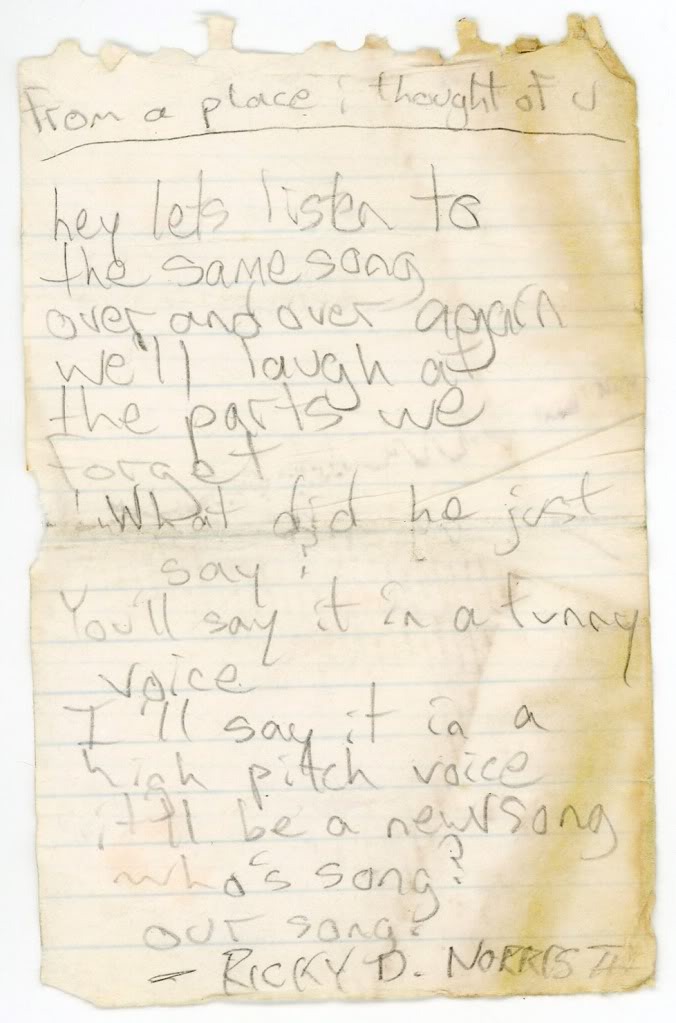 From a place i thought of u
hey lets listen to
the same song
over and over again
we'll laugh at
the parts we
forget
What did he just
say?
You'll say it in a funny
voice
I'll say it in a
high pitch voice
it'll be a new song
who's song?
our song.
- RICKY D. NORRIS III